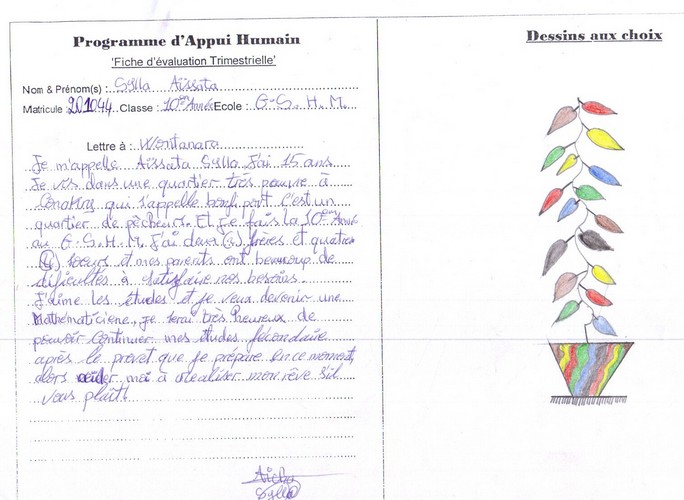 Programme d'Appui Humain
'Fiche d'évaluation Trimestrielle'
Nom & Prénom(s) : Sylla Aïssata
Matricule : 201044 Classe : 10ème Année Ecole : G-S. H. M.
Lettre à : Wontanara
Je m'appelle Aïssata Sylla J'ai 15 ans
Je vis dans une quartier très pauvre à
Conakry qui s'appelle bonfi port C'est un
quartier de pêcheurs. Et Je fais la 10ème Année
au G-S.H.M. J'ai deux (2) frères et quatre
(4) soeurs et mes parents ont beaucoup de
dificultés à satisfaire nos besoins.
J'aime les études et je veux devenir une
Mathématiciène, Je serai très heureux de
pouvoir continuer mes études secondaire
après le brevet que je prépare en ce moment,
alors aider moi a realiser mon rêve s'il
vous plaît!
Aicha
Sylla
Dessins aux choix